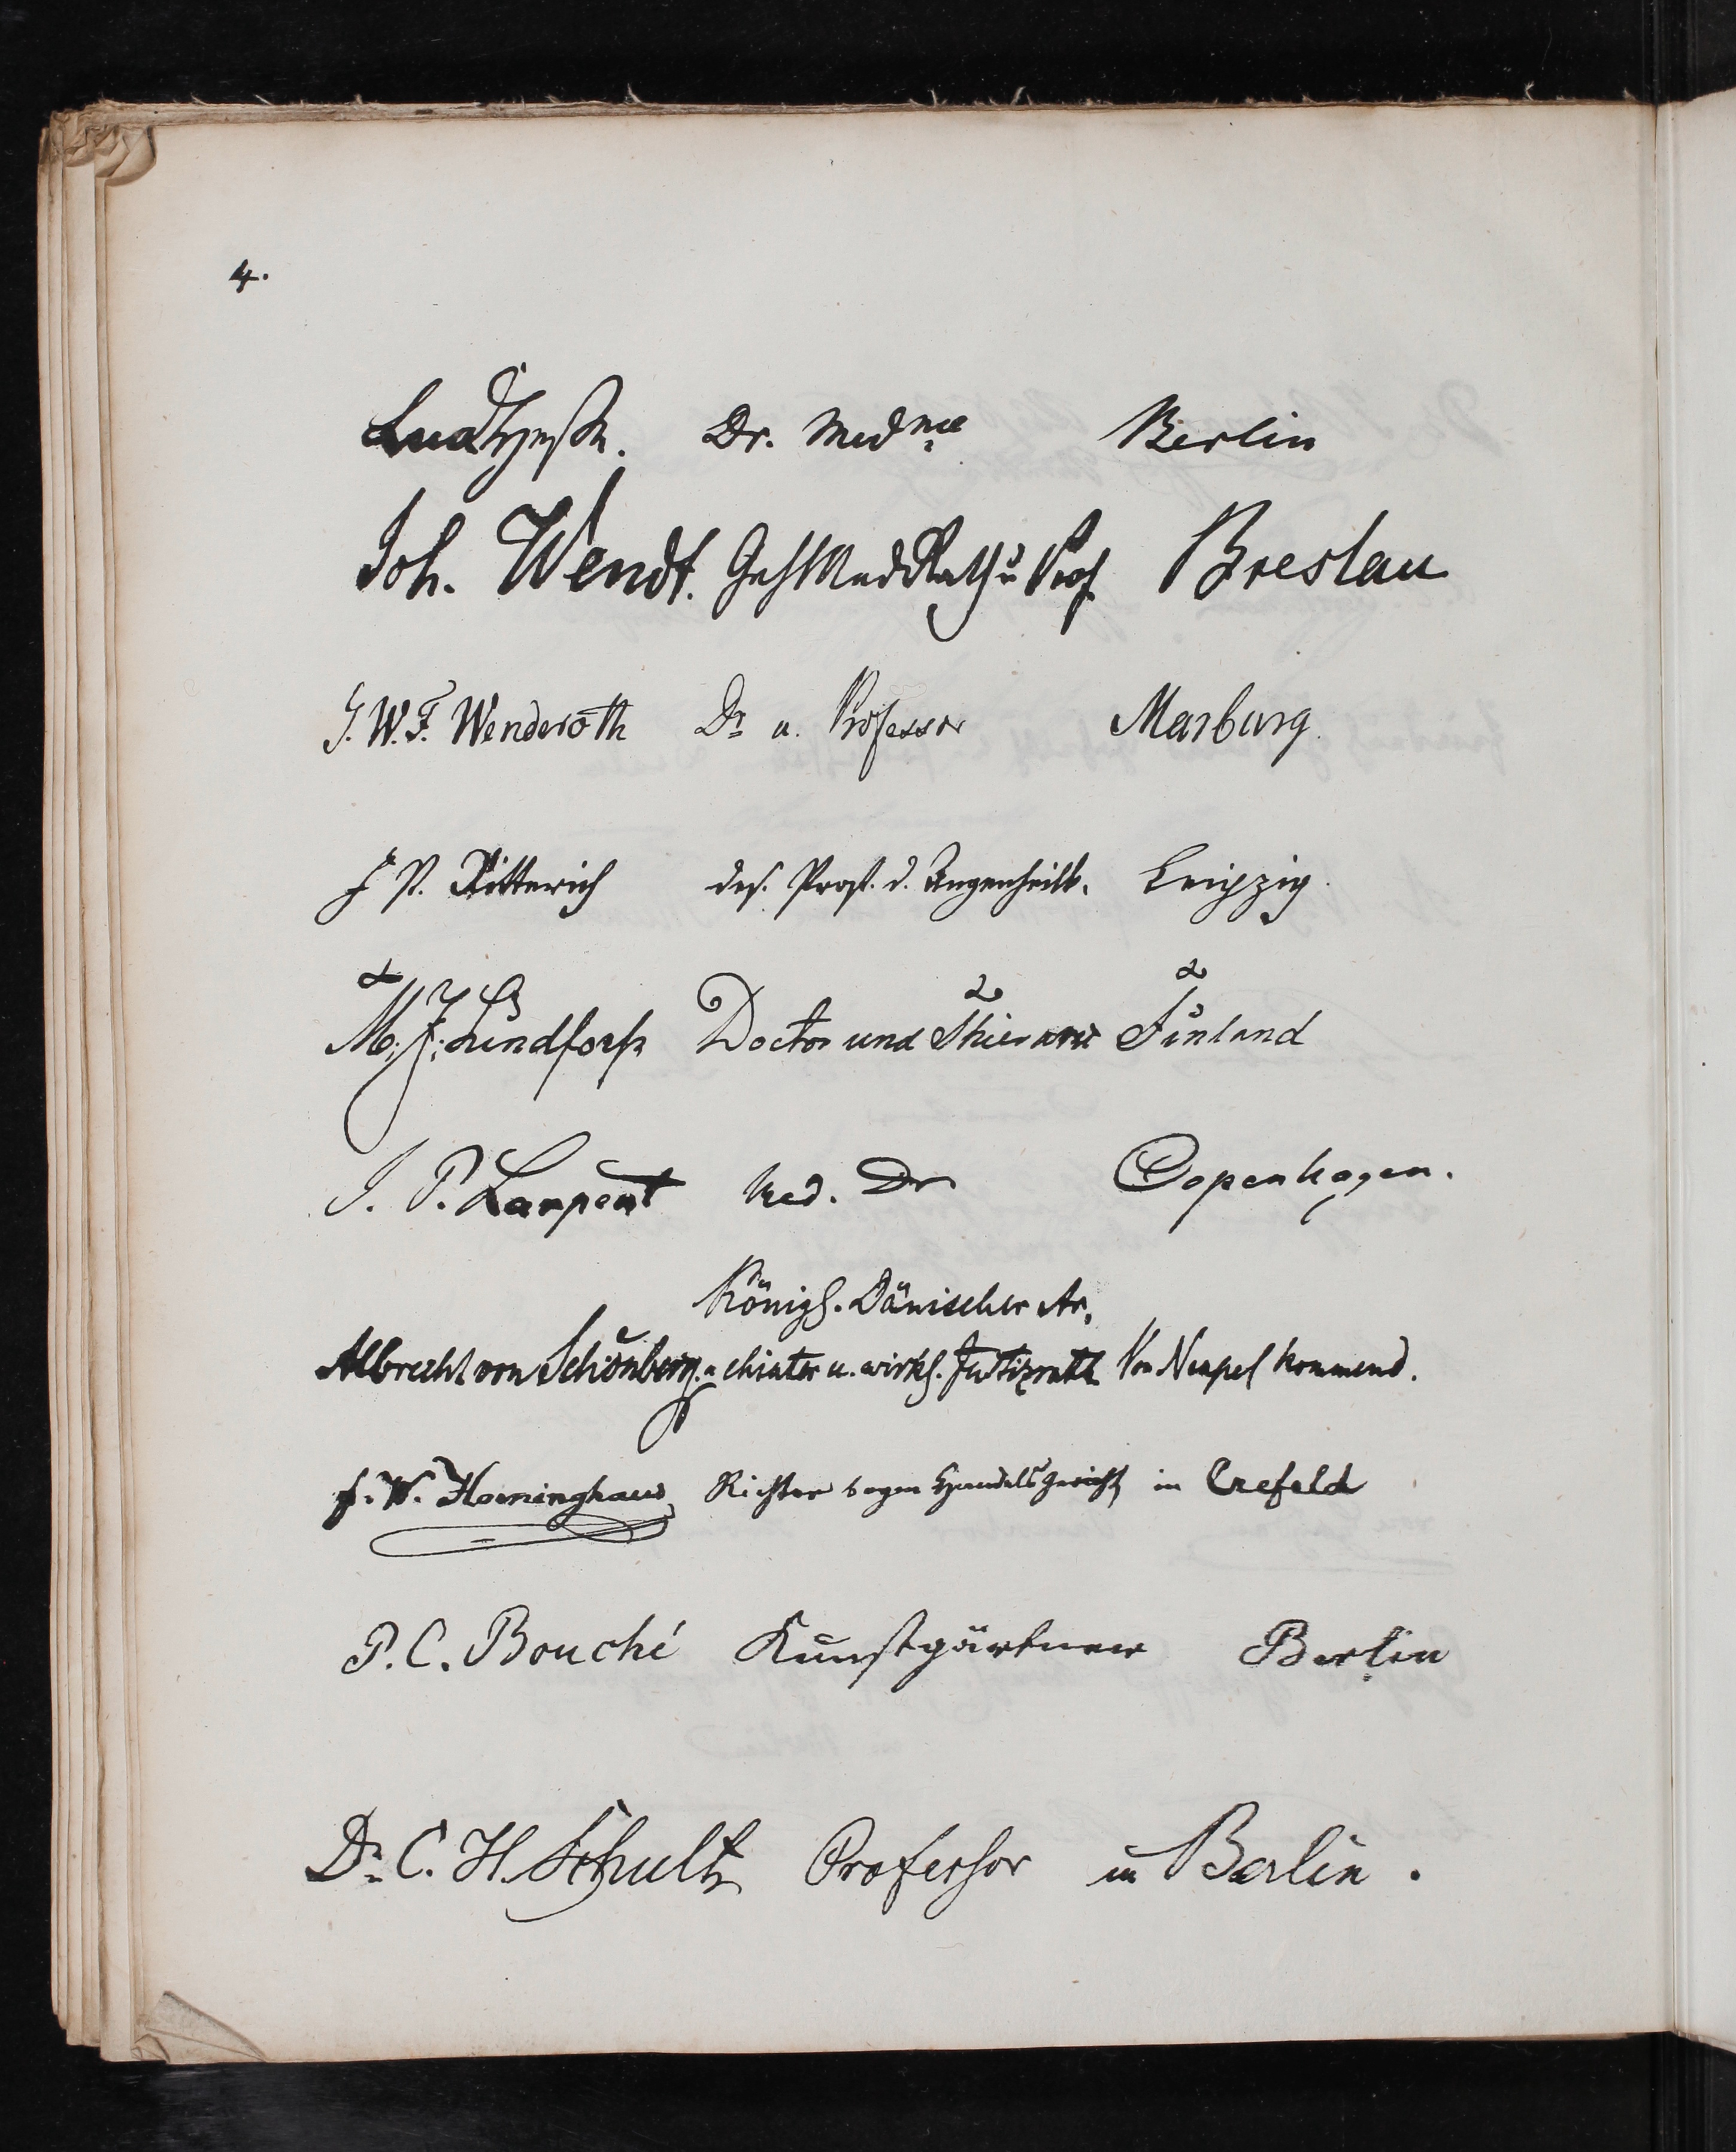 4.
Dr. Med Berlin
Joh. Wendt. Geh MedRath u Prof Breslau
G. W. F. Wenderoth Dr u. Professor Marburg.
F. P. Ritterich des. Prof. d. Augenheilk. Leipzig.
M: J: Lundforß Doctor und Thierarzt Finland
J. P. Larpent Med. Dr Copenhagen.
Königl. Dänischer Ar,
Albrecht von Schönberg. chiater u. wirkl. Justizrath Von Neapel kommend.
F. W. Hoeninghaus Richter Handelsgericht in Crefeld
P. C. Bouché Kunstgärtner Berlin
Dr C. H. Schultz Professor in Berlin.